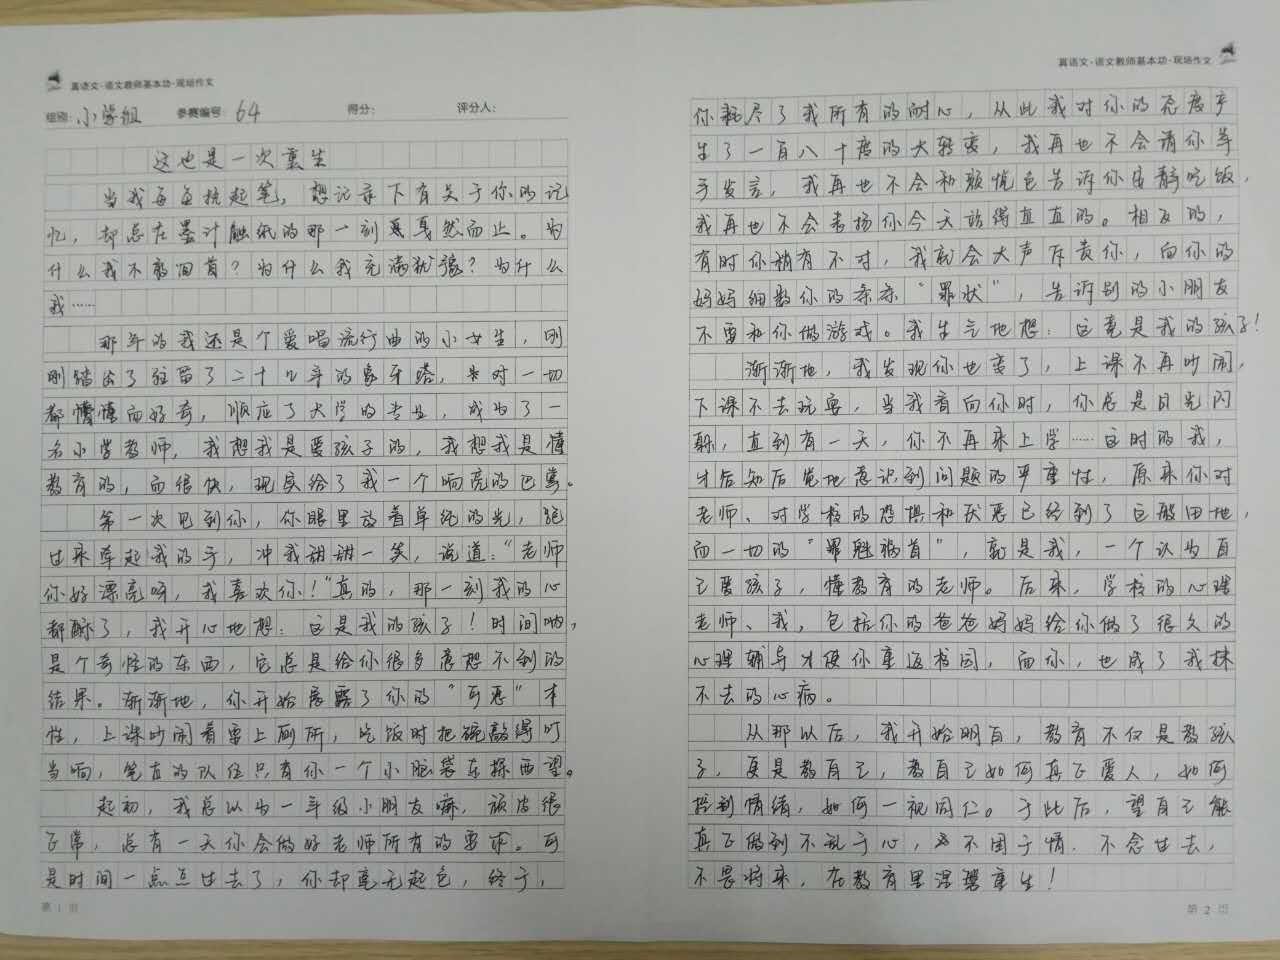 真语文·语文教师基本功·现场作文
组别：小学组 参赛编号：64 得分： 评分人：
这也是一次重生
当我每每执起笔，想记录下有关于你的记
忆，却总在墨汁触纸的那一刻戛然而止。为
什么我不敢回首？为什么我充满犹豫？为什么
我……
那年的我还是个爱唱流行曲的小女生，刚
刚踏出了驻留了二十几年的象牙塔，对一切
都懵懂而好奇，顺应了大学的专业，成为了一
名小学教师，我想我是爱孩子的，我想我是懂
教育的，而很快，现实给了我一个响亮的巴掌。
第一次见到你，你眼里放着单纯的光，跑
过来牵起我的手，冲我甜甜一笑，说道：“老师
你好漂亮呀，我喜欢你！”真的，那一刻我的心
都酥了，我开心地想：这是我的孩子！时间呐，
是个奇怪的东西，它总是给你很多意想不到的
结果。渐渐地，你开始展露了你的“可恶”本
性，上课吵闹着要上厕所，吃饭时把碗敲得叮
当响，笔直的队伍只有你一个小脑袋东探西望。
起初，我总以为一年级小朋友嘛，顽皮很
正常，总有一天你会做好老师所有的要求。可
是时间一点点过去了，你却毫无起色，终于，
第 1 页
真语文·语文教师基本功·现场作文
你耗尽了我所有的耐心，从此我对你的态度产
生了一百八十度的大转变，我再也不会请你举
手发言，我再也不会和颜悦色告诉你安静吃饭，
我再也不会表扬你今天站得直直的。相反的，
有时你稍有不对，我就会大声斥责你，向你的
妈妈细数你的条条“罪状”，告诉别的小朋友
不要和你做游戏。我生气地想：这竟是我的孩子！
渐渐地，我发现你也变了，上课不再吵闹，
下课不去玩耍，当我看向你时，你总是目光闪
躲，直到有一天，你不再来上学……这时的我，
才后知后觉地意识到问题的严重性，原来你对
老师、对学校的恐惧和厌恶已经到了这般田地，
而一切的“罪魁祸首”，就是我，一个认为自
己爱孩子，懂教育的老师。后来，学校的心理
老师、我，包括你的爸爸妈妈给你做了很久的
心理辅导才使你重返校园，而你，也成了我抹
不去的心病。
从那以后，我开始明白，教育不仅是教孩
子，更是教自己，教自己如何真正爱人，如何
控制情绪，如何一视同仁。于此后，望自己能
真正做到不乱于心，不困于情．不念过去，
不畏将来，在教育里涅槃重生！
第 2 页